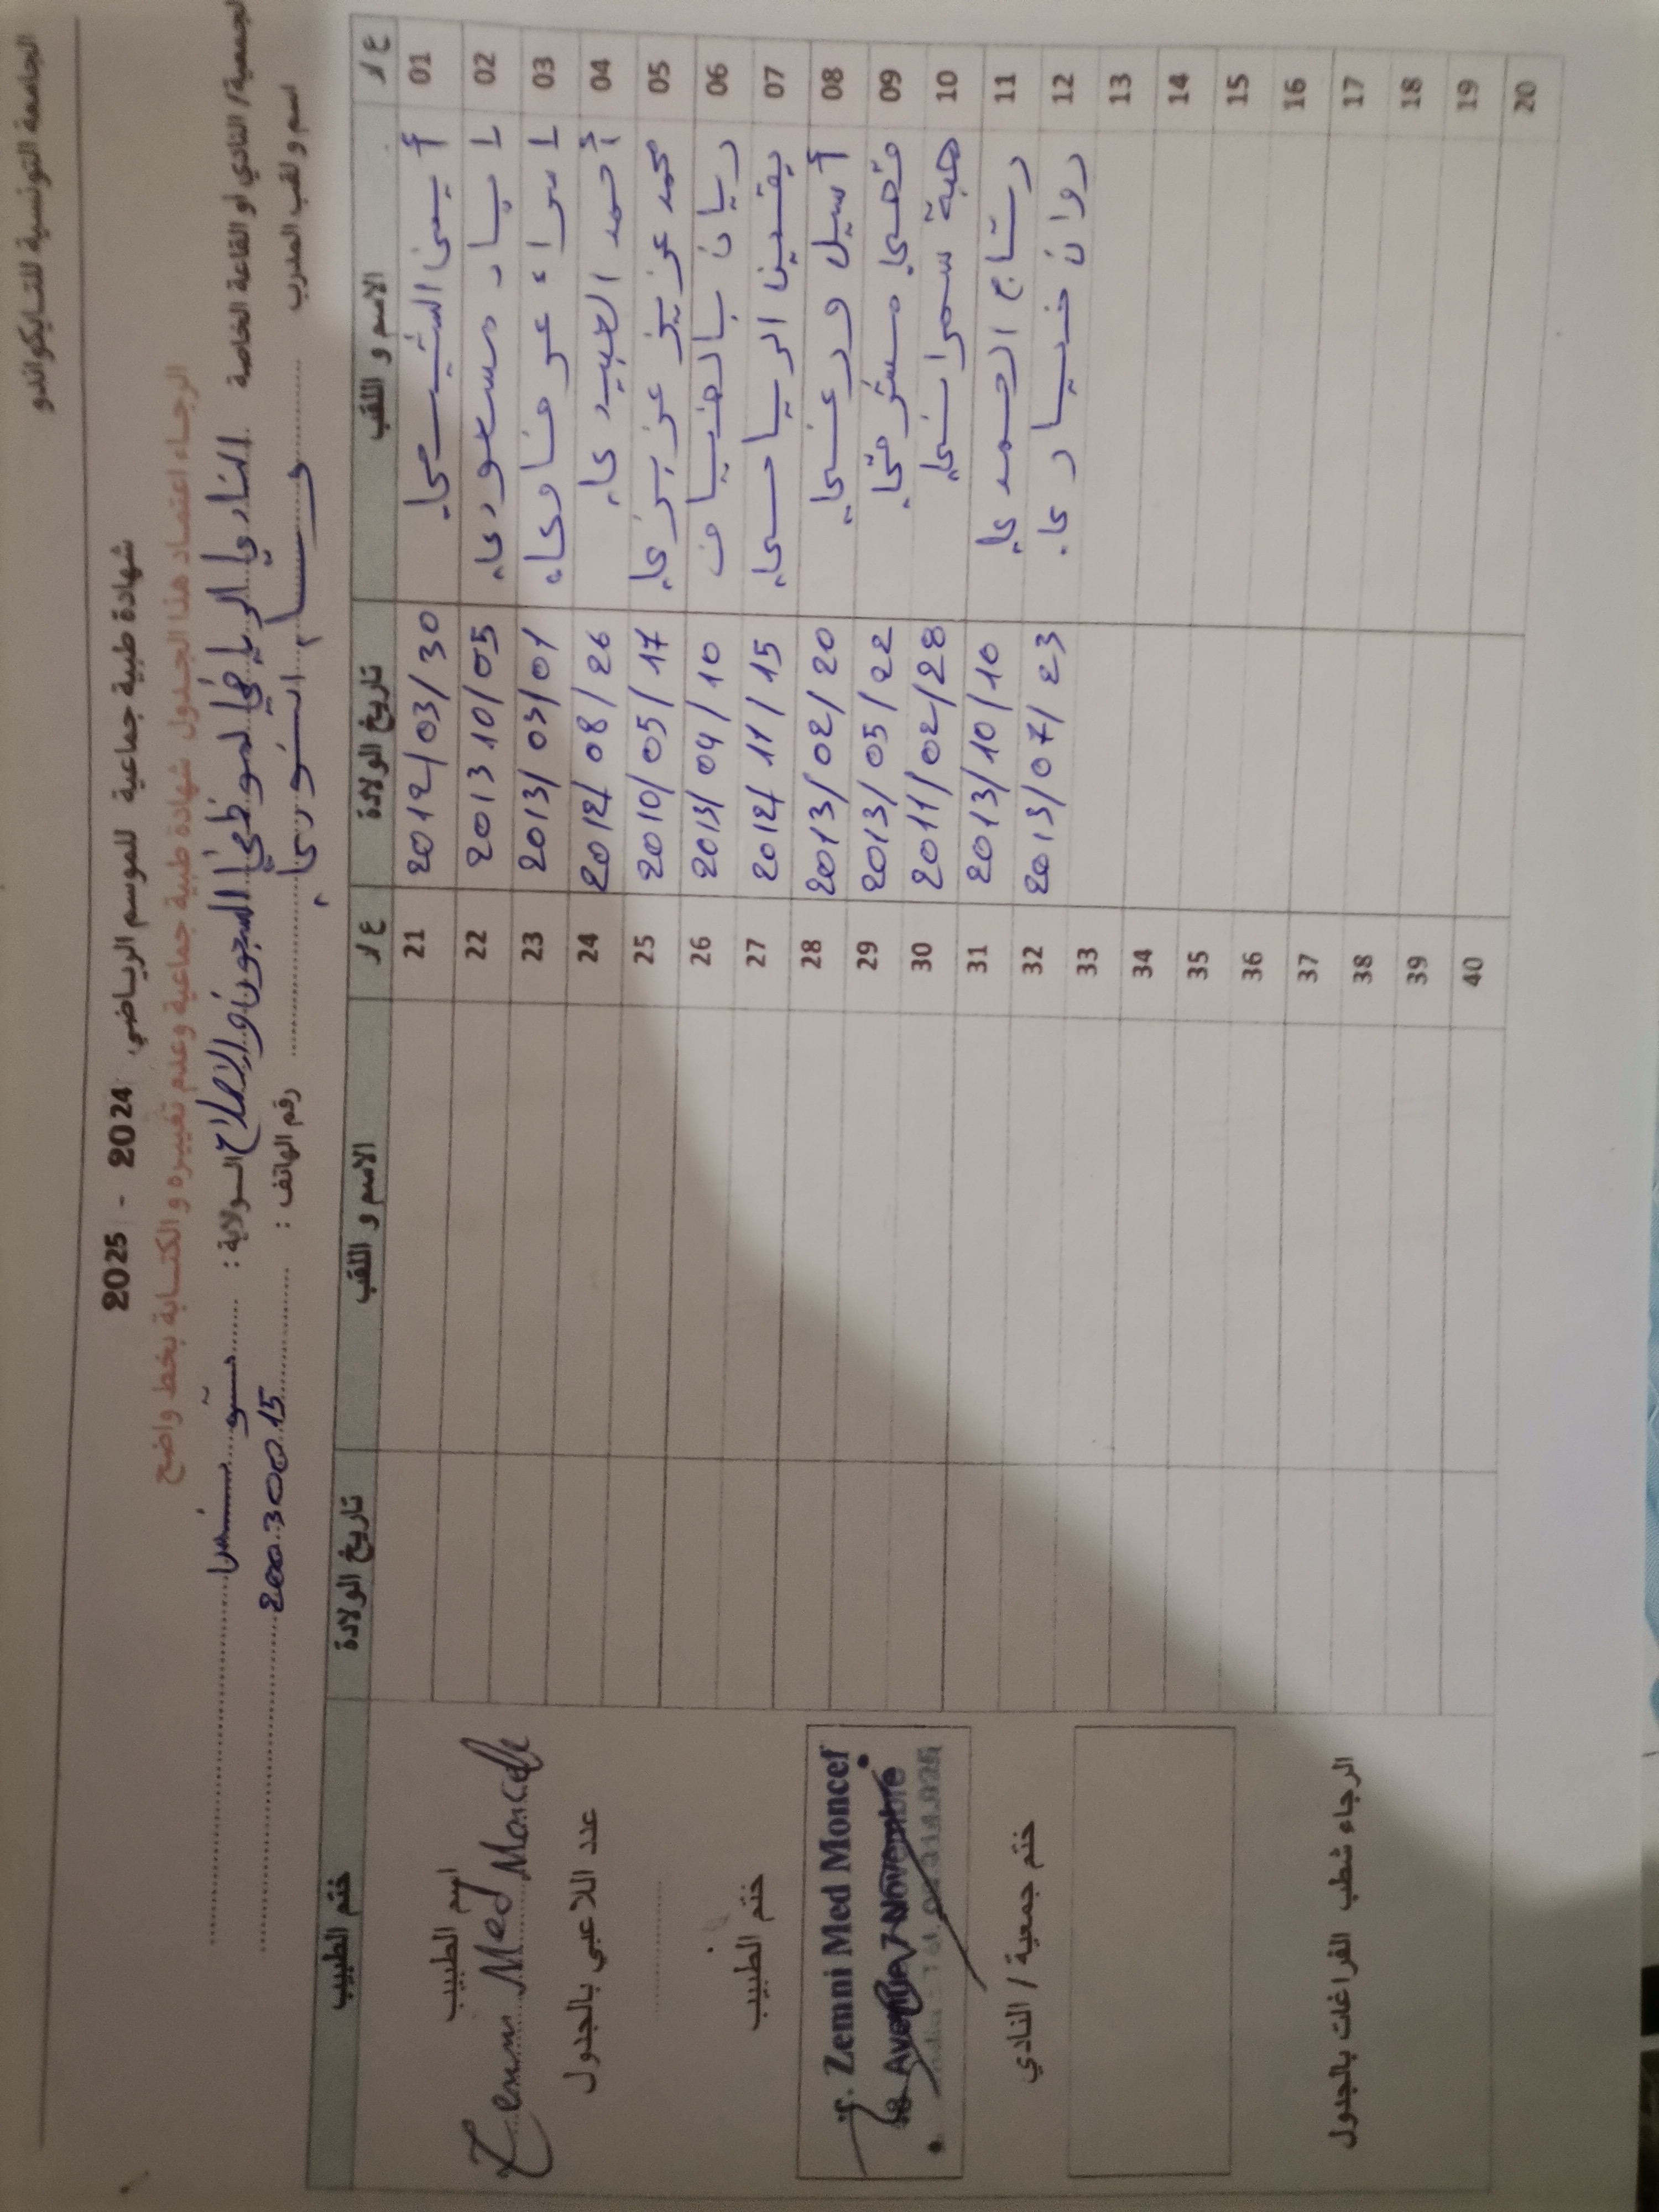 الجامعة التونسية للتايكواندو
شهادة طبية جماعية للموسم الرياضي 2024 - 2025
الرجاء اعتماد هذا الجدول شهادة طبية جماعية وعدم تغييره و الكتابة بخط واضح
لجمعية/ النادي او القاعة الخاصة النادي الرياضي لموظفي السجون والإصلاح الولاية : تونس
اسم و لقب المدرب وسام رقم الهاتف :
ع/د الاسم و اللقب تاريخ الولادة ع/د الاسم و اللقب تاريخ الولادة ختم الطبيب
01 2012/03/30 21
02 إياد مسعودي 2013 10/05 22
03 إسراء عرفاوي 2013/03/01 23
04 أحمد العبيدي 2012/08/26 24
05 محمد عزيز عزيزي 2010/05/17 25
06 ريان بالضياف 2013/04/10 26
07 يقين الرياحي 2012/11/15 27
08 أسيل ورغي 2013/02/20 28
09 قصي مشرقي 2013/05/22 29
10 هبة سمراني 2011/02/28 30
11 رتاج الحمدي 2013/10/10 31
12 روان خياري 2013/07/23 32
13 33
14 34
15 35
16 36
17 37
18 38
19 39
20 40
اسم الطبيب
Zemni Med Moncef
عدد اللاعبي بالجدول
ختم الطبيب
Dr. Zemni Med Moncef
Avenue 7 Novembre
ختم جمعية / النادي
الرجاء شطب الفراغات بالجدول